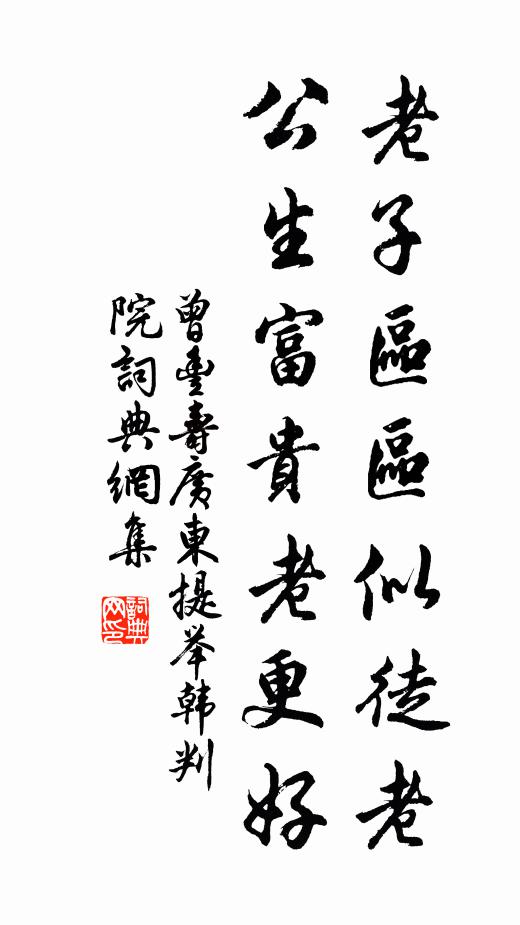 老子區區似徒老
公生富貴老更好
曾豐壽廣東提举韩判
院詞典網集
詞典
网印